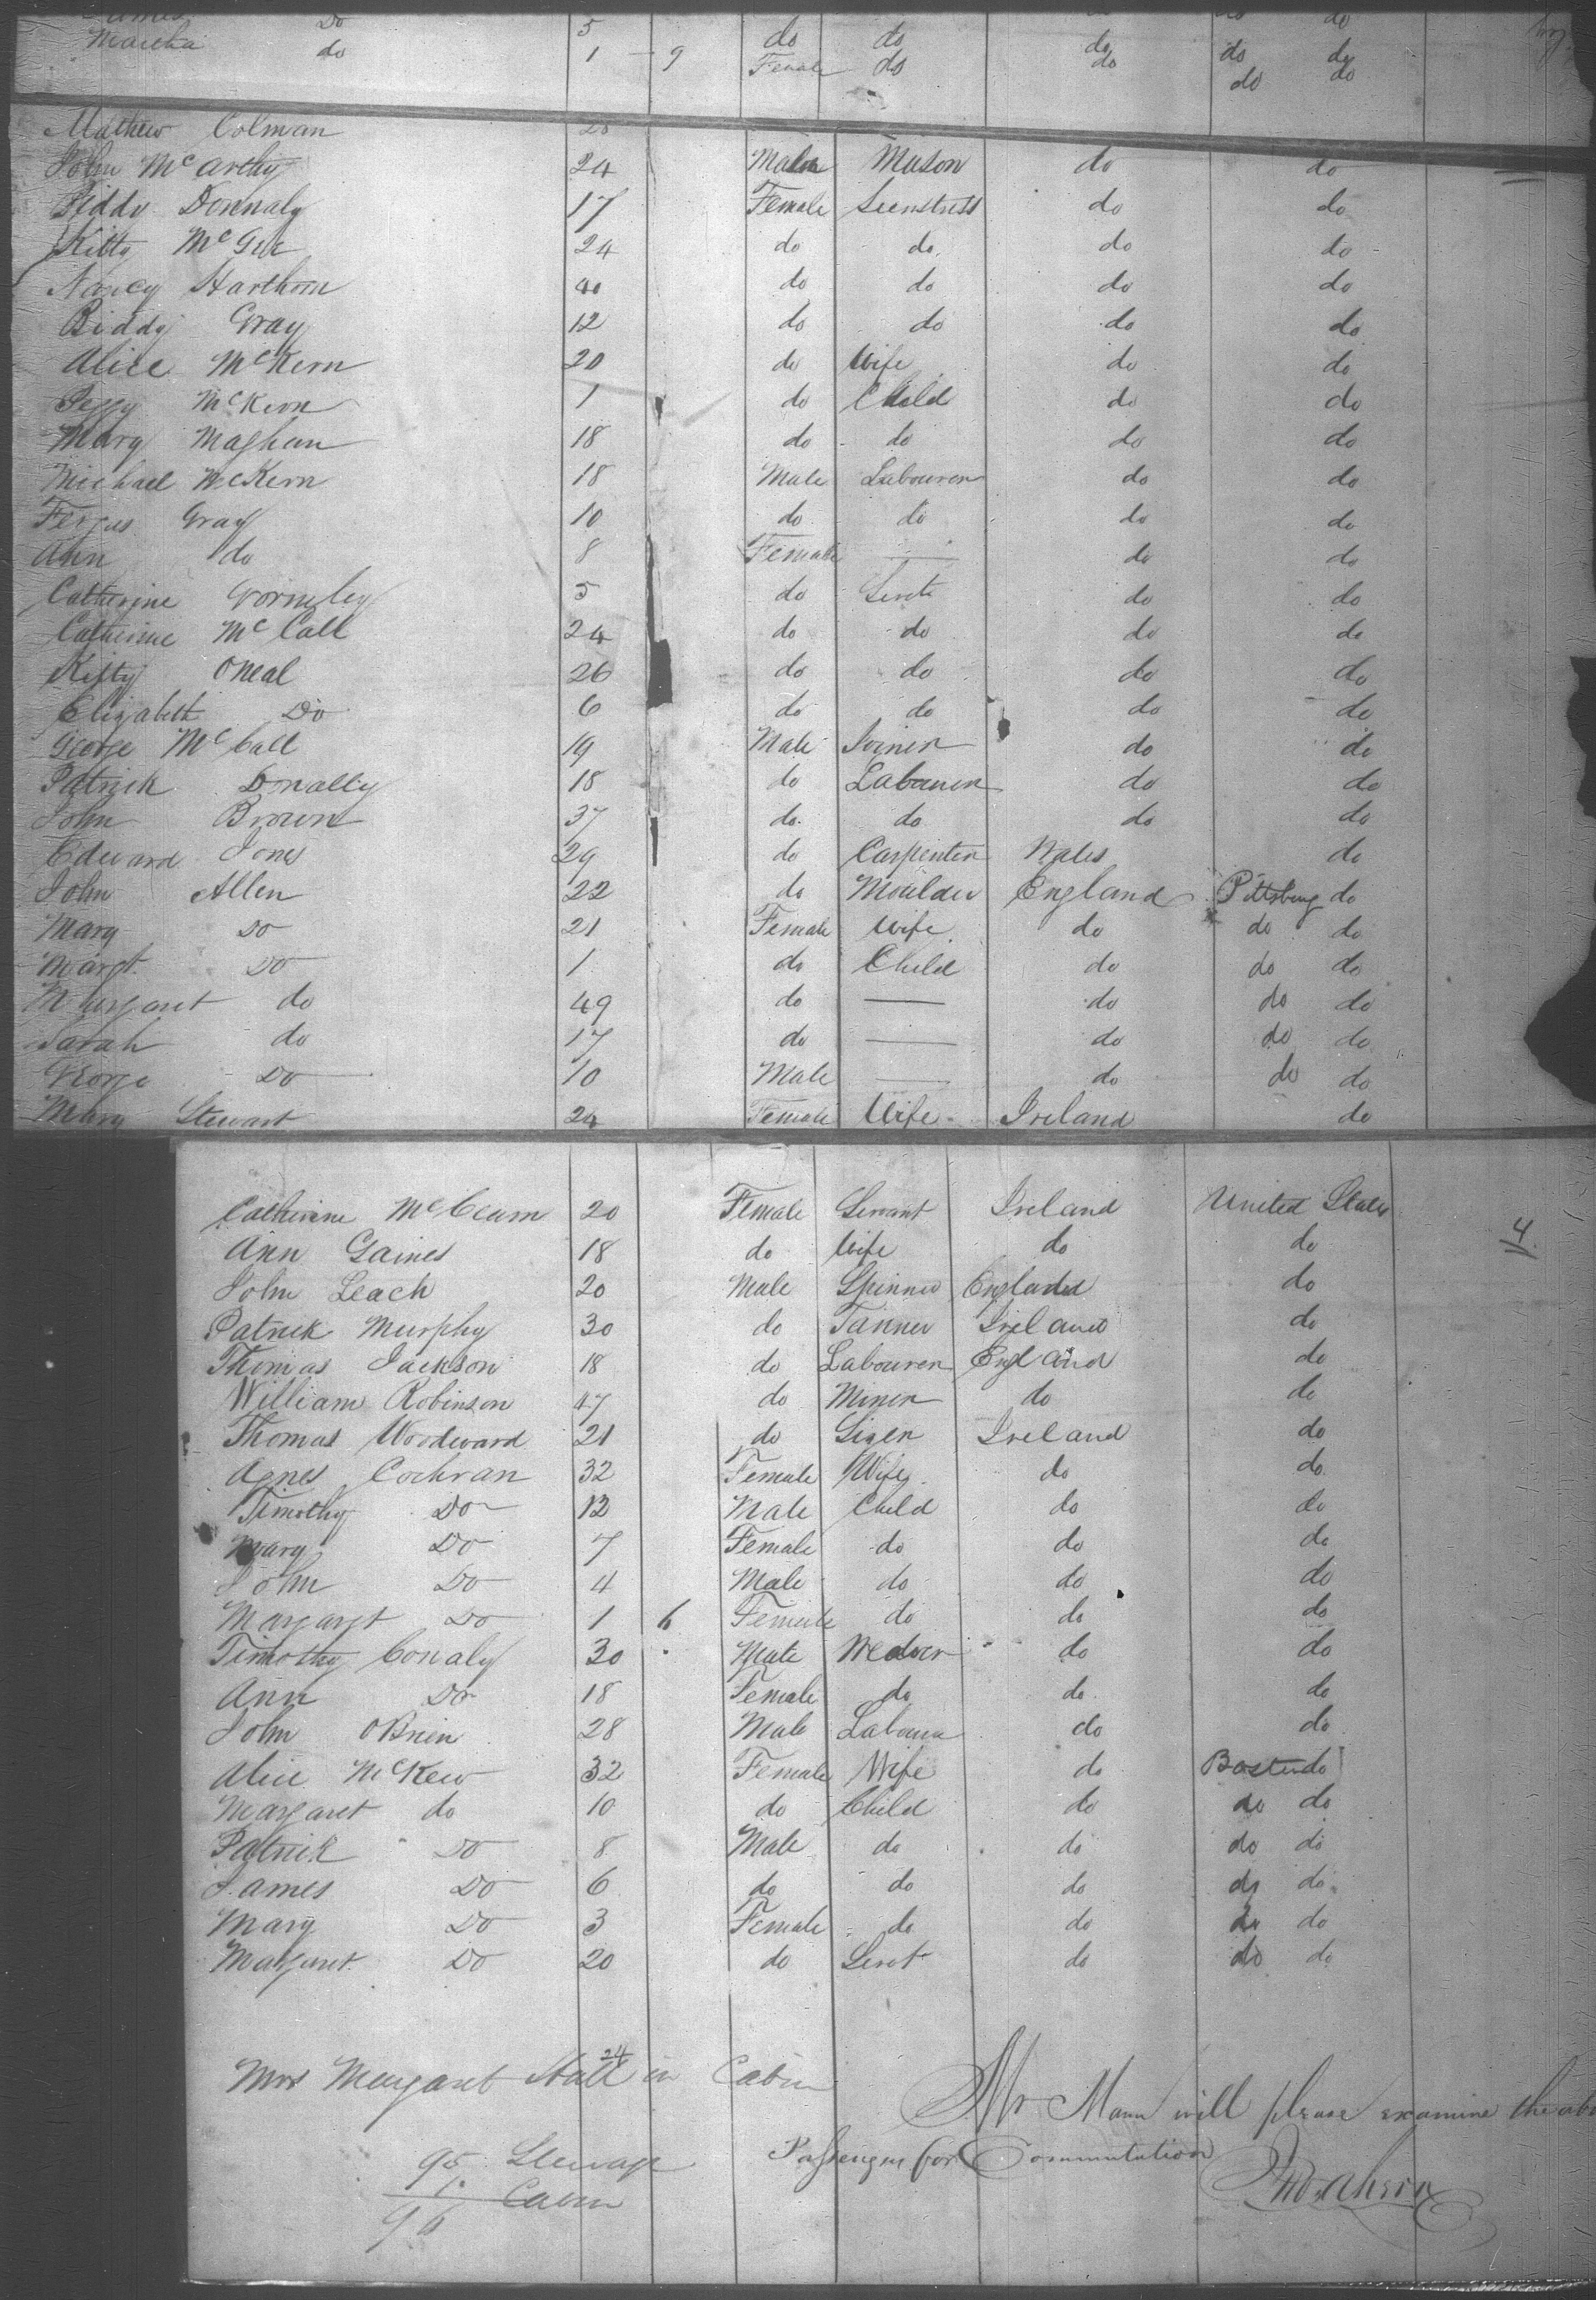 James Do 5 do do do do do
Martha do 1 9 Female do do do do
Mathew Colman 20
John McCarthy 24 Male Mason do do
Biddy Donnaly 17 Female Seemstress do do
Kitty McGee 24 do do do do
Nancy Harthorn 40 do do do do
Biddy Gray 12 do do do do
Alice McKern 20 do Wife do do
Peggy McKern 1 do Child do do
Mary Maghan 18 do do do do
Michael McKern 18 Male Labourer do do
Fergus Gray 10 do do do do
Ann do 8 Female — do do
Catherine Gormley 5 do Servt do do
Catherine McCall 24 do do do do
Kitty ONeal 26 do do do do
Elizabeth Do 6 do do do do
George McCall 19 Male Joiner do do
Patrick Donally 18 do Labourer do do
John Brown 37 do do do do
Edward Jones 29 do Carpenter Wales do
John Allen 22 do Moulder England Pittsburg do
Mary Do 21 Female Wife do do do
Margt Do 1 do Child do do do
Margaret do 49 do — do do do
Sarah do 17 do — do do do
George Do 10 Male — do do do
Mary Stewart 24 Female Wife Ireland do
Catherine 20 Female Servant Ireland United States
4
Ann Gaines 18 do Wife do do
John Leach 20 Male Spinner England do
Patrick Murphy 30 do Tanner Ireland do
Thomas Jackson 18 do Labourer England do
William Robinson 47 do Miner do do
Thomas Woodward 21 do Ireland do
Agnes Cochran 32 Female Wife do do
Timothy Do 12 Male Child do do
Mary Do 7 Female do do do
John Do 4 Male do do do
Margaret Do 1 6 Female do do do
Timothy Conaly 30 Male Weaver do do
Ann Do 18 Female do do do
John OBrien 28 Male Labourer do do
Alice McKew 32 Female Wife do Boston do
Margaret do 10 do Child do do do
Patrick Do 8 Male do do do do
James Do 6 do do do do do
Mary Do 3 Female do do do do
Margaret Do 20 do Servt do do do
Mrs Margaret Hall 24 in Cabin
Mr Mann will please examine the abo
95 Steerage Passenger for Commutation
1 Cabin
96